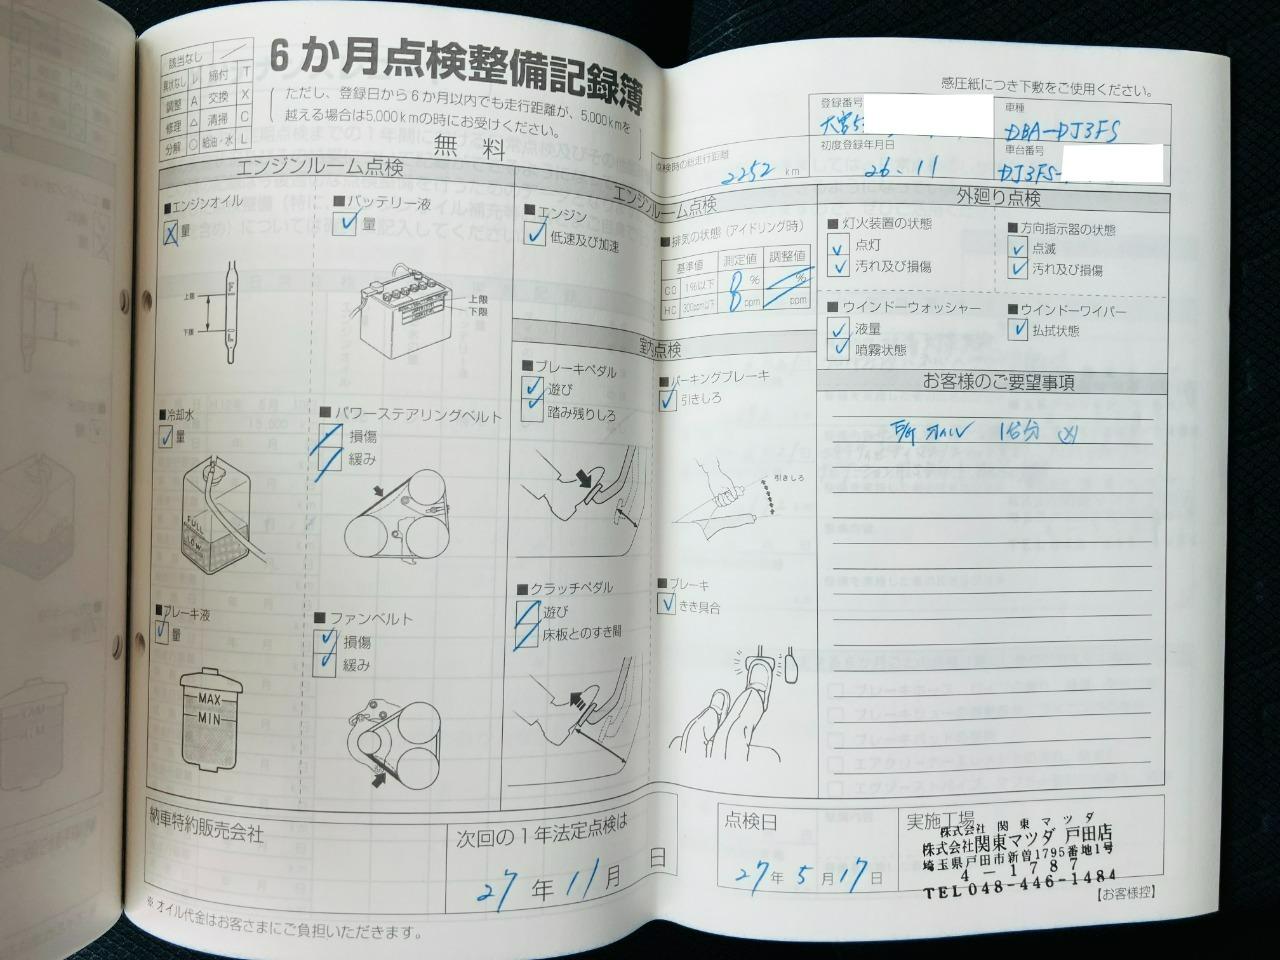 6か月点検整備記録簿
該当なし ／
異状なし レ 締付 T
調整 A 交換 X
修理 △ 清掃 C
分解 ○ 給油・水 L
ただし、登録日から6か月以内でも走行距離が、5,000kmを
越える場合は5,000kmの時にお受けください。
無料
感圧紙につき下敷をご使用ください。
登録番号
大宮5
車種
DBA-DJ3FS
点検時の総走行距離
2252 km
初度登録年月日
26.11
車台番号
DJ3FS-
エンジンルーム点検
■エンジンオイル
量
上限
下限
F
L
■バッテリー液
量
上限
下限
■冷却水
量
FULL
LOW
■パワーステアリングベルト
損傷
緩み
■ブレーキ液
量
MAX
MIN
■ファンベルト
損傷
緩み
エンジンルーム点検
■エンジン
低速及び加速
■排気の状態(アイドリング時)
基準値 測定値 調整値
CO 1%以下 0 % %
HC 300ppm以下 0 ppm ppm
室内点検
■ブレーキペダル
遊び
踏み残りしろ
■パーキングブレーキ
引きしろ
引きしろ
■クラッチペダル
遊び
床板とのすき間
■ブレーキ
きき具合
外廻り点検
■灯火装置の状態
点灯
汚れ及び損傷
■方向指示器の状態
点滅
汚れ及び損傷
■ウインドーウォッシャー
液量
噴霧状態
■ウインドーワイパー
払拭状態
お客様のご要望事項
オイル 1台分
納車特約販売会社
次回の1年法定点検は
27年11月 日
点検日
27年5月17日
実施工場
株式会社 関東マツダ
株式会社関東マツダ 戸田店
埼玉県戸田市新曽1795番地1号
4-1787
TEL048-446-1484
【お客様控】
※オイル代金はお客さまにご負担いただきます。